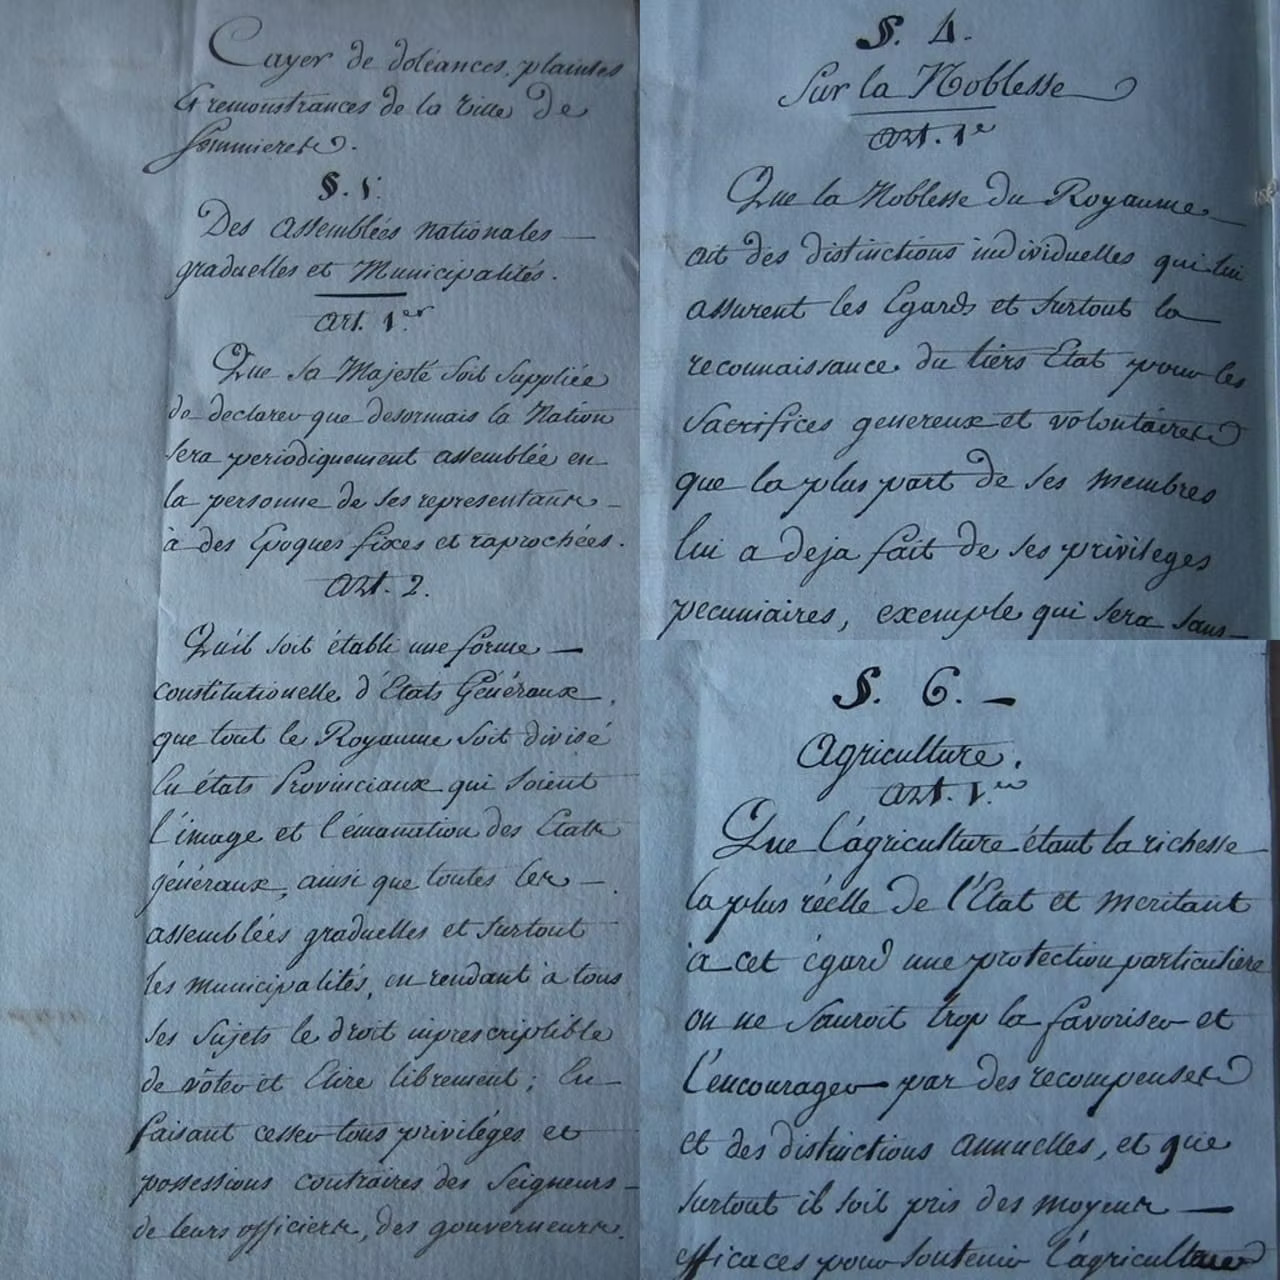 Cayer de doléances, plaintes
& remonstrances de la ville de
Sommieres.
§. 1.
Des assemblées nationales
graduelles et Municipalités.
Art. 1.er
Que sa Majesté soit suppliée
de declarer que desormais la Nation
sera periodiquement assemblée en
la personne de ses representans
à des Epoques fixes et raprochées.
Art. 2.
Qu'il soit établi une forme
constitutionelle d'Etats Généraux,
que tout le Royaume soit divisé
En états Provinciaux qui soient
l'image et l'émanation des Etats
généraux, ainsi que toutes les
assemblées graduelles et surtout
les municipalités, en rendant à tous
ses sujets le droit inprescriptible
de vôter et Elire librement; En
faisant cesser tous privilèges et
possessions contraires des Seigneurs
de leurs officiers, des gouverneurs.
§. 4.
Sur la Noblesse
Art. 1e
Que la Noblesse du Royaume
ait des distinctions individuelles qui lui
assurent les Egards et surtout la
reconnaissance du tiers Etat pour les
sacrifices genereux et volontaires
que la plus part de ses membres
lui a deja fait de ses privileges
pecuniaires, exemple qui sera sans
§. 6.
Agriculture.
Art. 1.er
Que l'agriculture étant la richesse
la plus réelle de l'Etat et meritant
à cet égard une protection particuliere
on ne sauroit trop la favoriser et
l'encourager par des recompenses
et des distinctions annuelles, et que
surtout il soit pris des moyens
efficaces pour soutenir l'agriculture